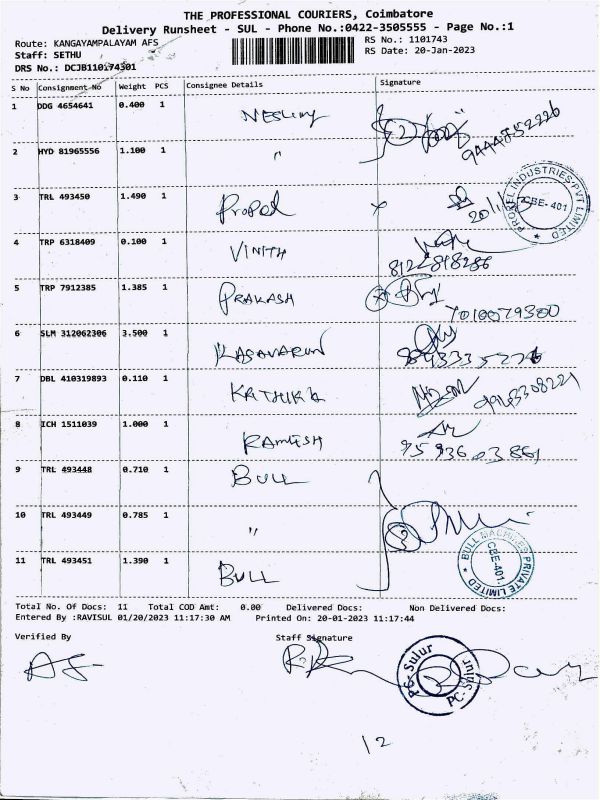 THE PROFESSIONAL COURIERS, Coimbatore
Delivery Runsheet - SUL - Phone No.:0422-3505555 - Page No.:1
Route: KANGAYAMPALAYAM AFS
RS No.: 1101743
Staff: SETHU
RS Date: 20-Jan-2023
DRS No.: DCJB110174301
S No Consignment No Weight PCS Consignee Details Signature
1 DDG 4654641 0.400 1
2 HYD 81965556 1.100 1 "
3 TRL 493450 1.490 1 Propel
PROPEL INDUSTRIES PVT LIMITED
CBE- 401
4 TRP 6318409 0.100 1 VINITH
8122818286
5 TRP 7912385 1.385 1 PRAKASH
7010079300
6 SLM 312062306 3.500 1
7 DBL 410319893 0.110 1
8 ICH 1511039 1.000 1 RAMESH
9 TRL 493448 0.710 1 BULL
10 TRL 493449 0.785 1 "
11 TRL 493451 1.390 1 BULL
BULL MACHINES PRIVATE LIMITED
CBE-401.
Total No. Of Docs: 11 Total COD Amt: 0.00 Delivered Docs: Non Delivered Docs:
Entered By :RAVISUL 01/20/2023 11:17:30 AM Printed On: 20-01-2023 11:17:44
Verified By Staff Signature
PC- Sulur
PC- Sulur
12